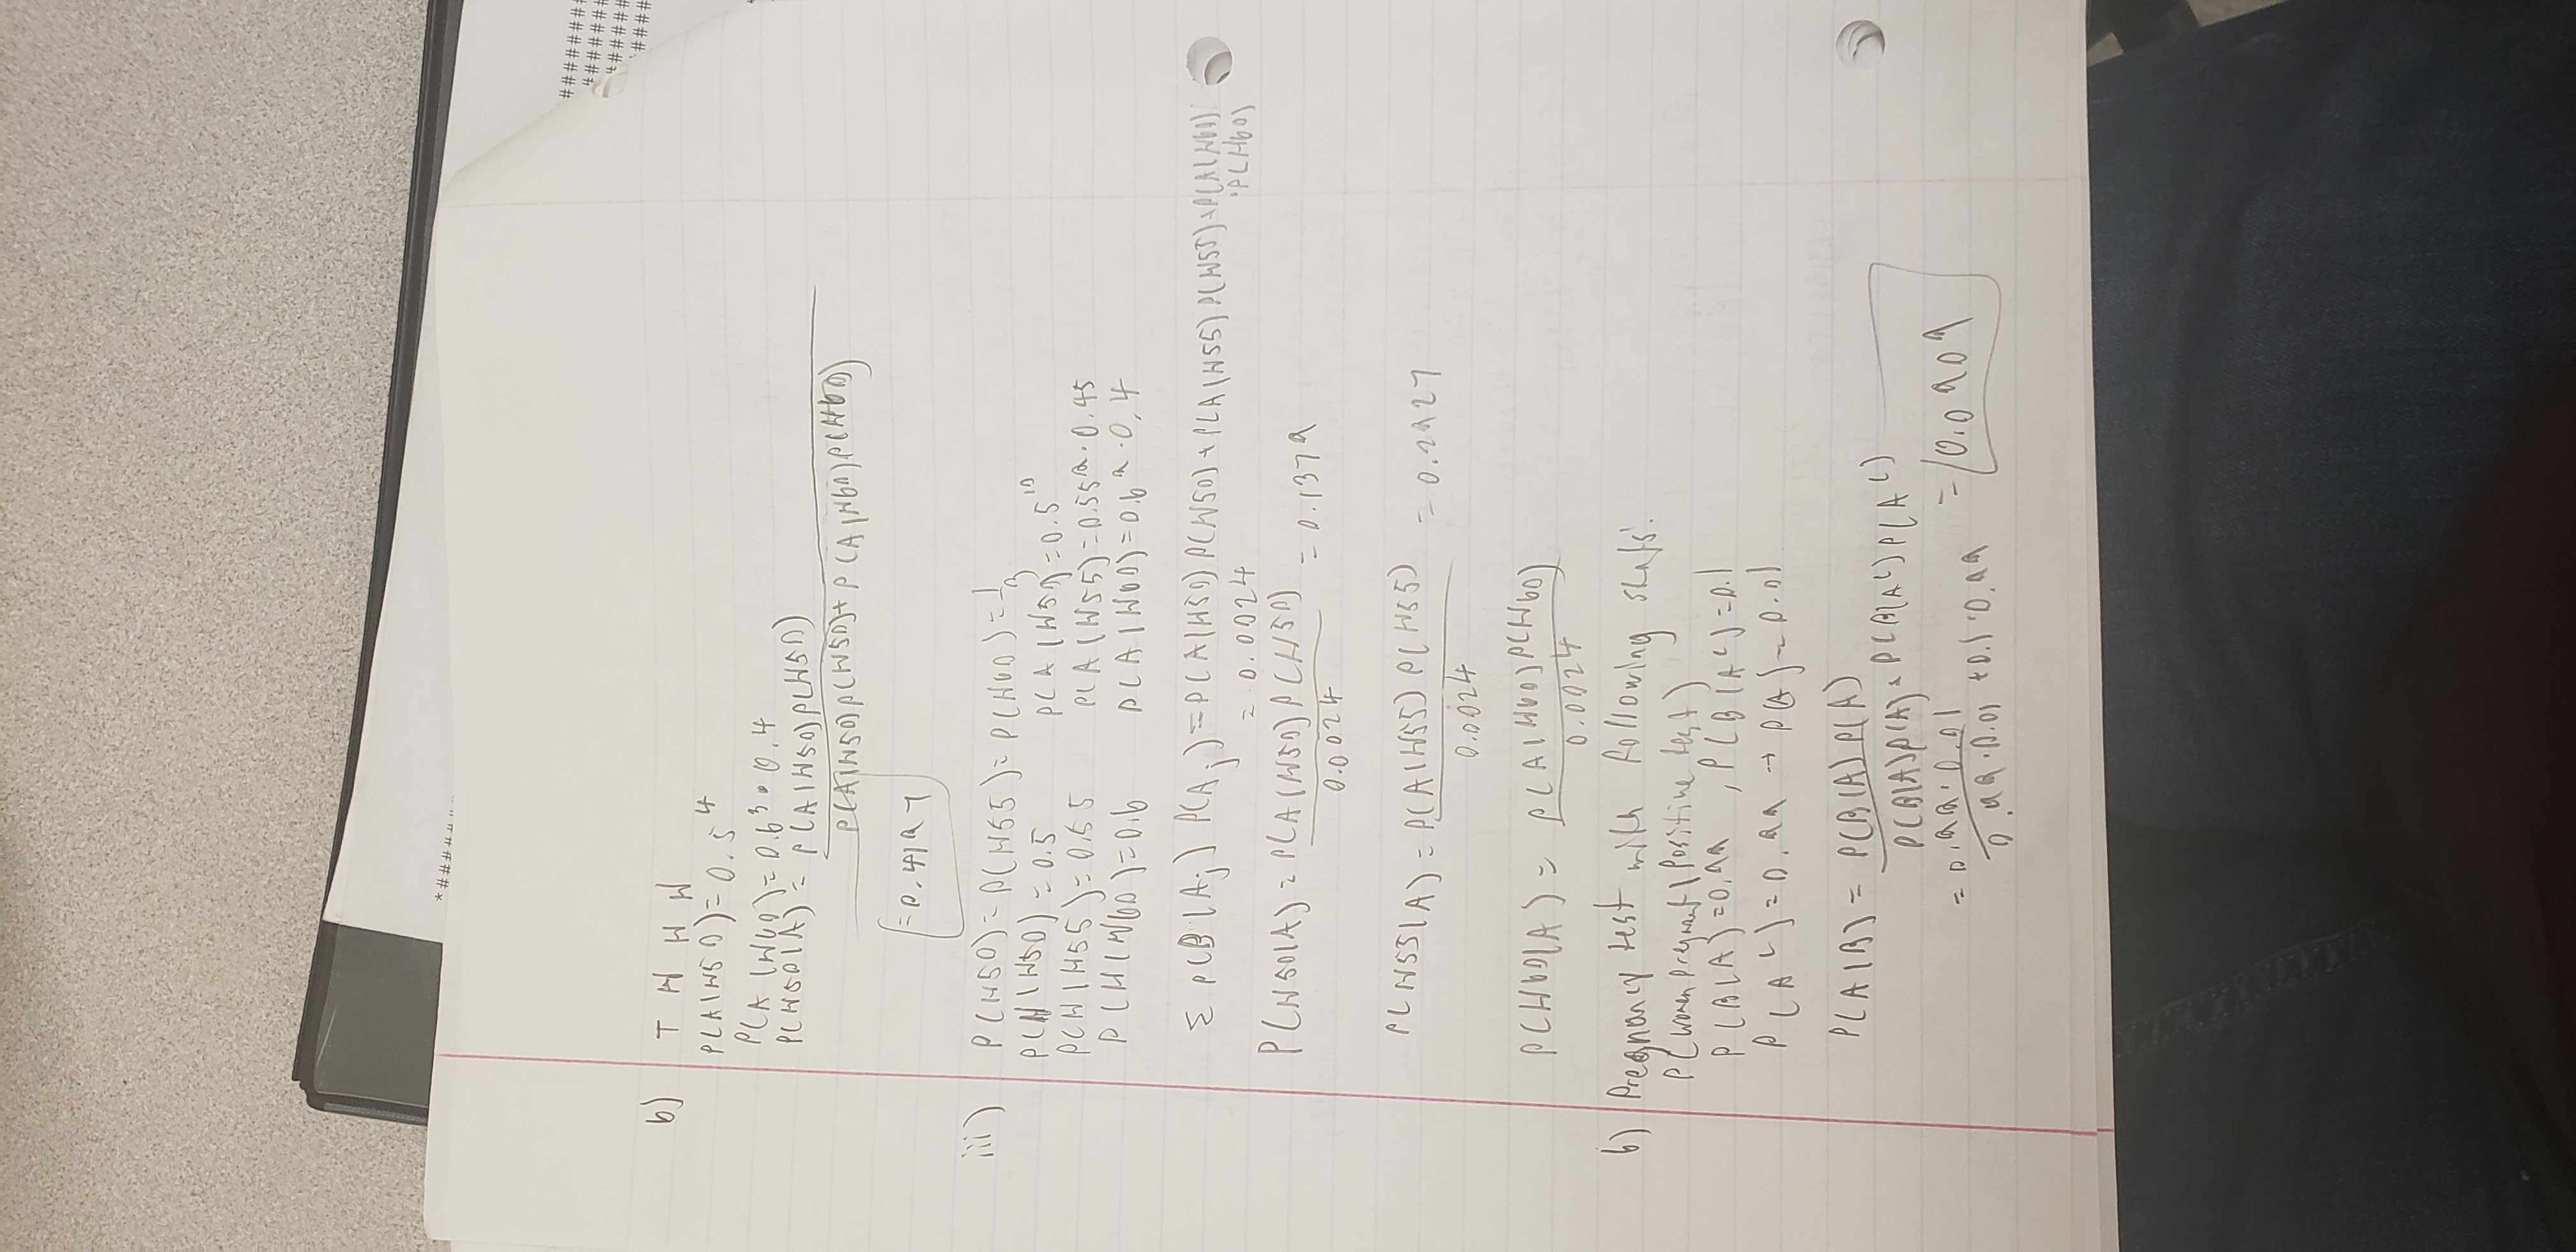 *######
########
#######
######
####
b) T H H H
P(A|H50)=0.5^4
P(A|H60)=0.6^3 • 0.4
P(H50|A) = P(A|H50)P(H50)
P(A|H50)P(H50)+P(A|H60)P(H60)
=0.4197
iii) P(H50)=P(H55)=P(H60)=1/3
P(H|H50)=0.5 P(A|H50)=0.5^10
P(H|H55)=0.55 P(A|H55)=0.55^9·0.45
P(H|H60)=0.6 P(A|H60)=0.6^9·0.4
Σ P(B|A_j) P(A_j)=P(A|H50)P(H50)+P(A|H55)P(H55)+P(A|H60)
·P(H60)
= 0.0024
P(H50|A)= P(A|H50)P(H50) = 0.1379
0.0024
P(H55|A)= P(A|H55)P(H55) = 0.2927
0.0024
P(H60|A) = P(A|H60)P(H60)
0.0024
b) Pregnancy test with following stats:
P(women pregnant|Positive test)
P(B|A)=0.99 , P(B|A^c)=0.1
P(A^c)=0.99 → P(A)=0.01
P(A|B)= P(B|A)P(A)
P(B|A)P(A)+P(B|A^c)P(A^c)
= 0.99·0.01
0.99·0.01+0.1·0.99 = 0.0909